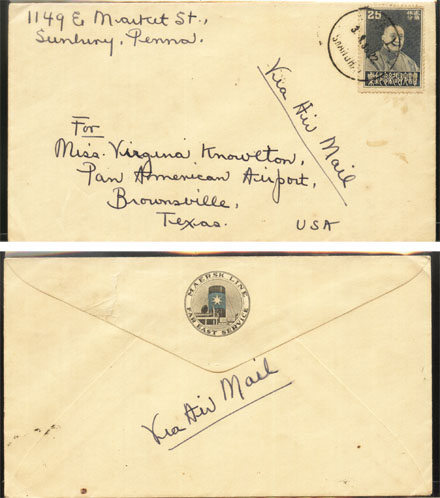 1149 E Market St.,
Sunbury, Penna.
25
Via Air Mail
For
Miss. Virginia Knowlton,
Pan American Airport,
Brownsville,
Texas.
USA
MAERSK LINE
FAR EAST SERVICE
Via Air Mail